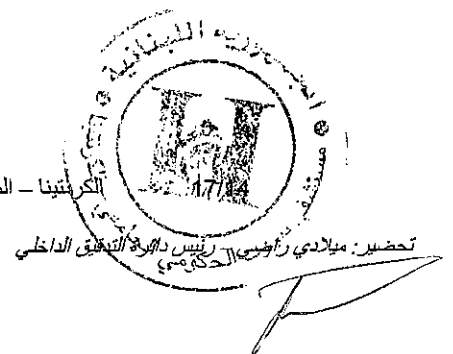 الجمهورية اللبنانية
مستشفى
الحكومي
17/14
الكرنتينا – ال
تحضير: ميلادي راضي – رئيس دائرة التدقيق الداخلي